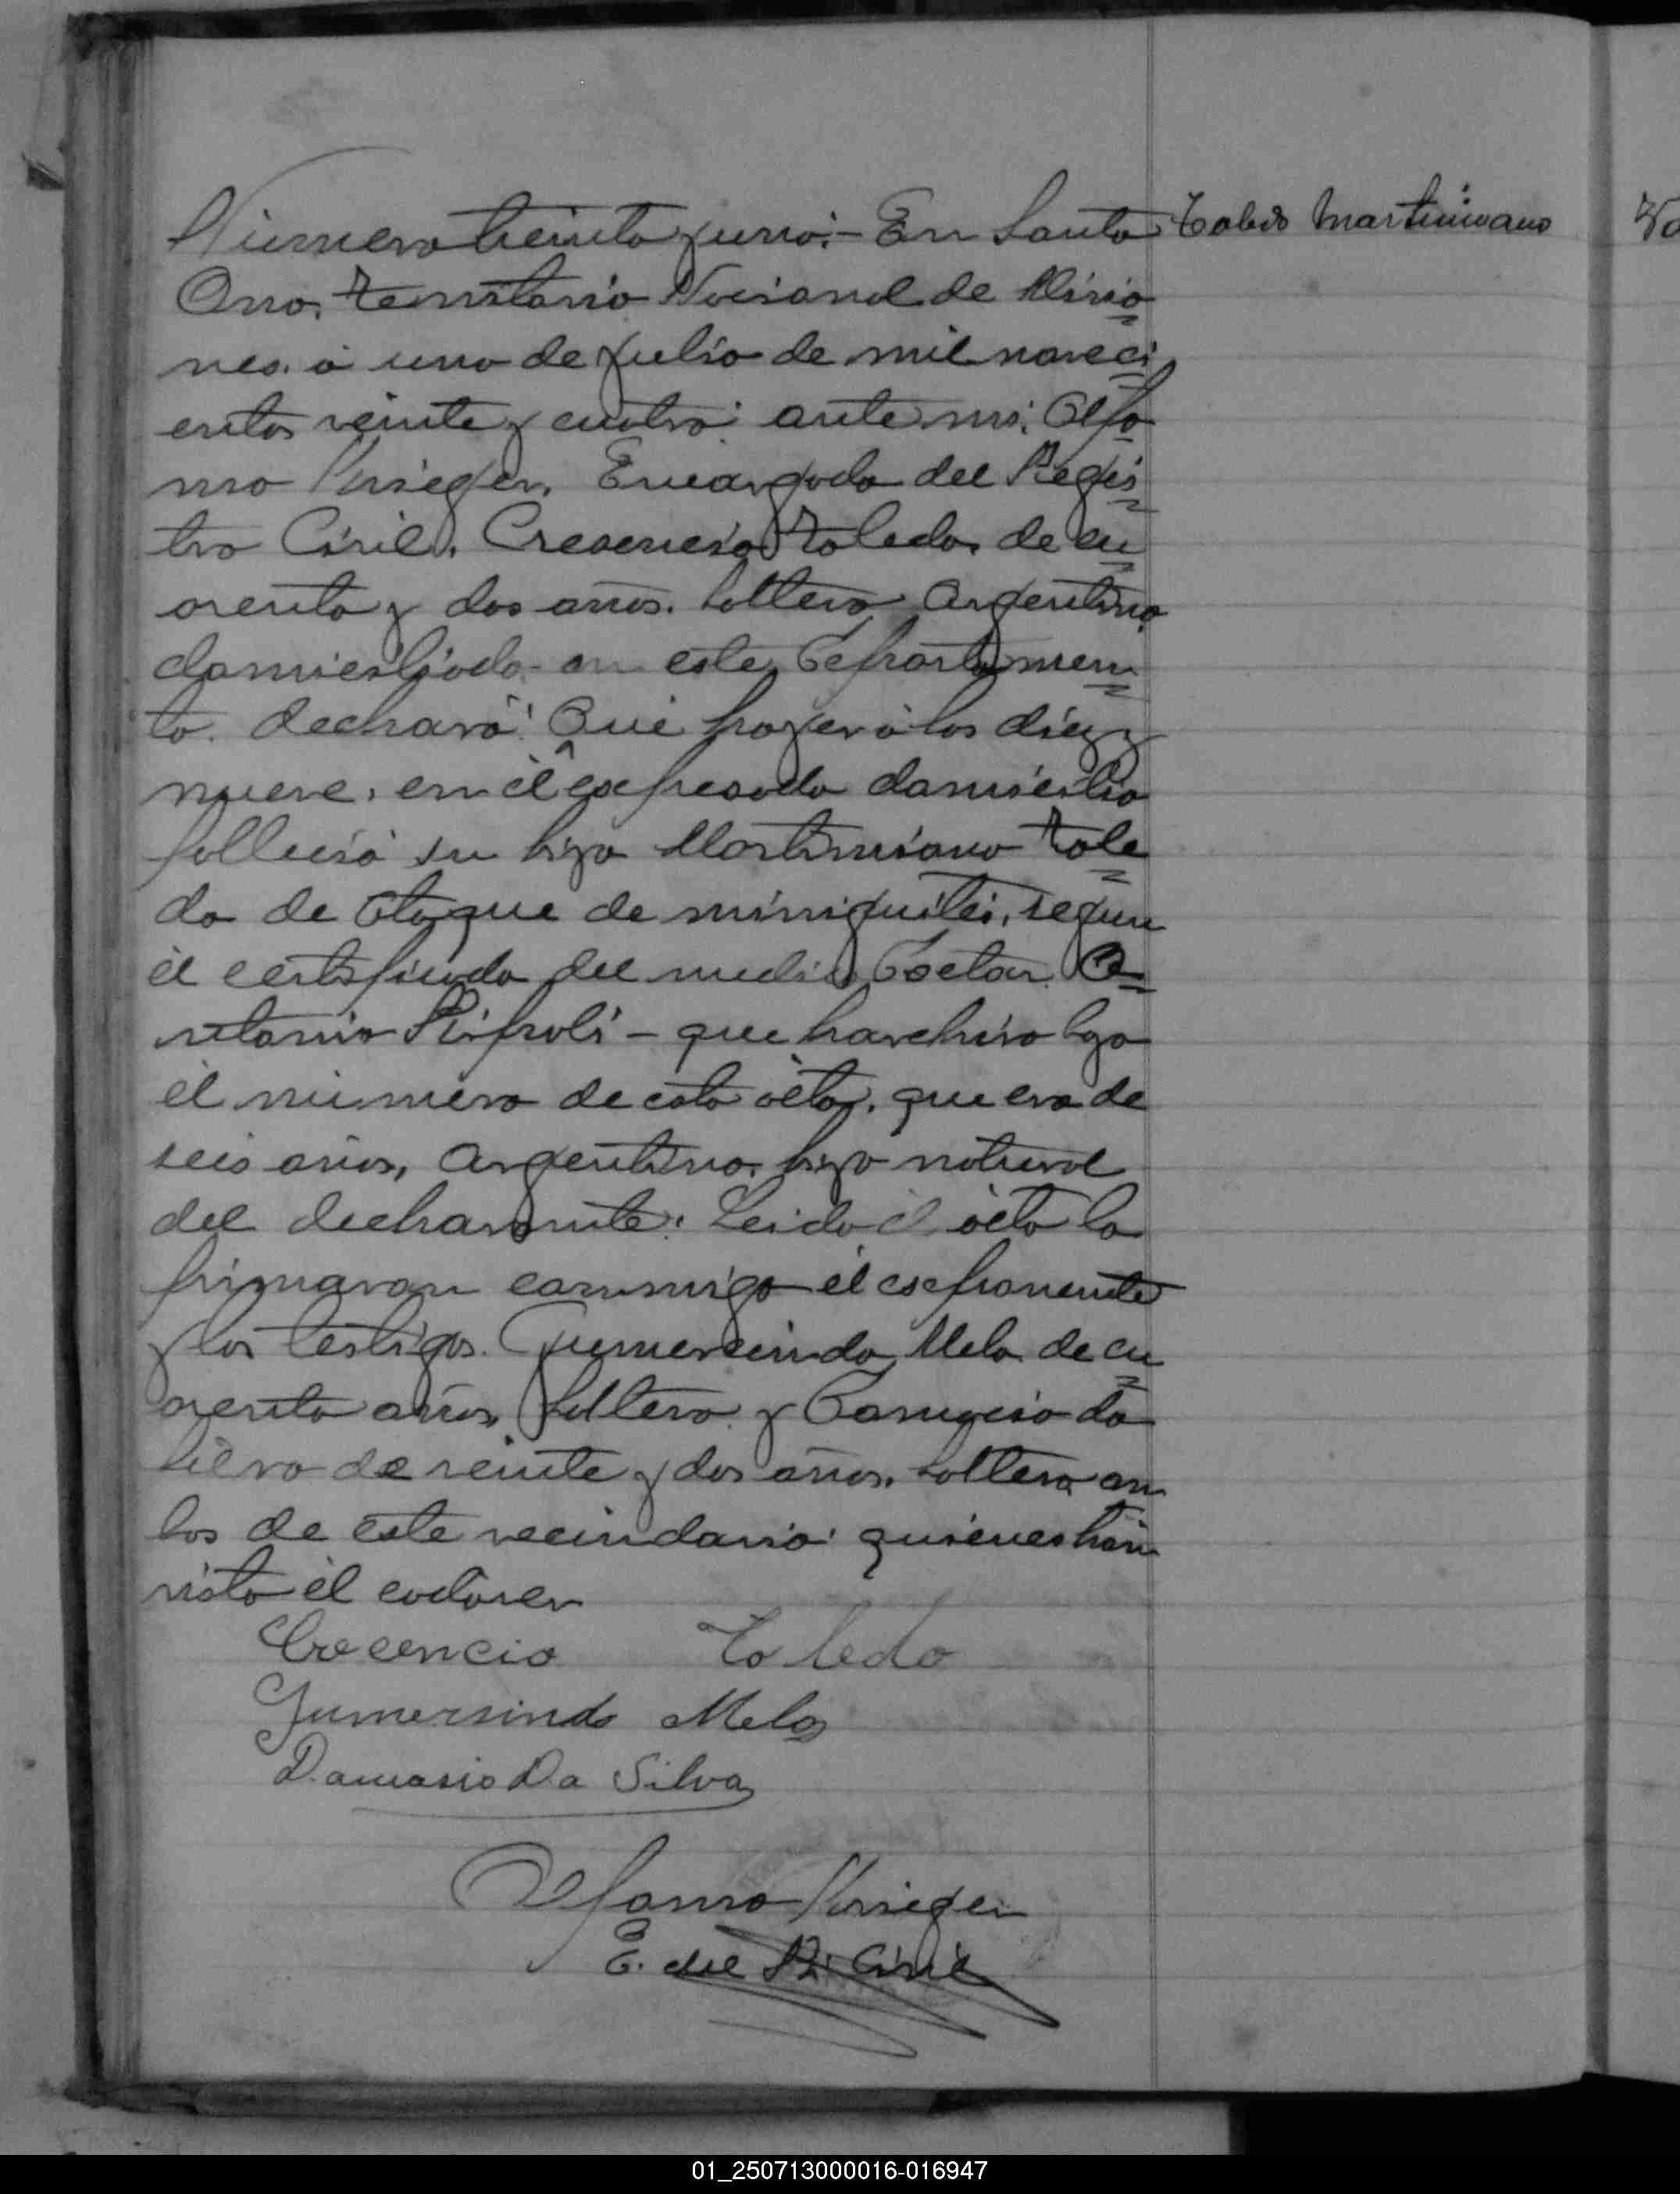 Numero treinta y uno:- En Santa
Ana. territorio Nacional de Misio
nes. á uno de Julio de mil noveci
entos veinte y cuatro: ante mi, Alfo
nso Krieger. Encargado del Regis
tro Civil, Crescencio Toledo, de cu
arenta y dos años. soltero Argentino
domiciliado en este Departamen
to. declaró: Que hayer á las diez y
nueve, en él expresado domicilio
falleció su hijo Martimiano Tole
do de Ataque de miniguites, segun
él certificado del medico Doctor
Ripoli - que harchivo bajo
él numero de esta ácta. que era de
seis años, Argentino. hijo natural
del declarante: Leida él ácta la
firmaron conmigo él exponente
y los testigos. Gumercindo Melo de cu
arenta años, soltero y Damacio da
Silva de veinte y dos años. soltero am
bos de este vecindario: quienes hán
visto él cadaver
Crecencio Toledo
Gumersindo Melo
Damasio Da Silva
Alfonso Krieger
E. del R. Civil
Toledo Martimiano
01_250713000016-016947